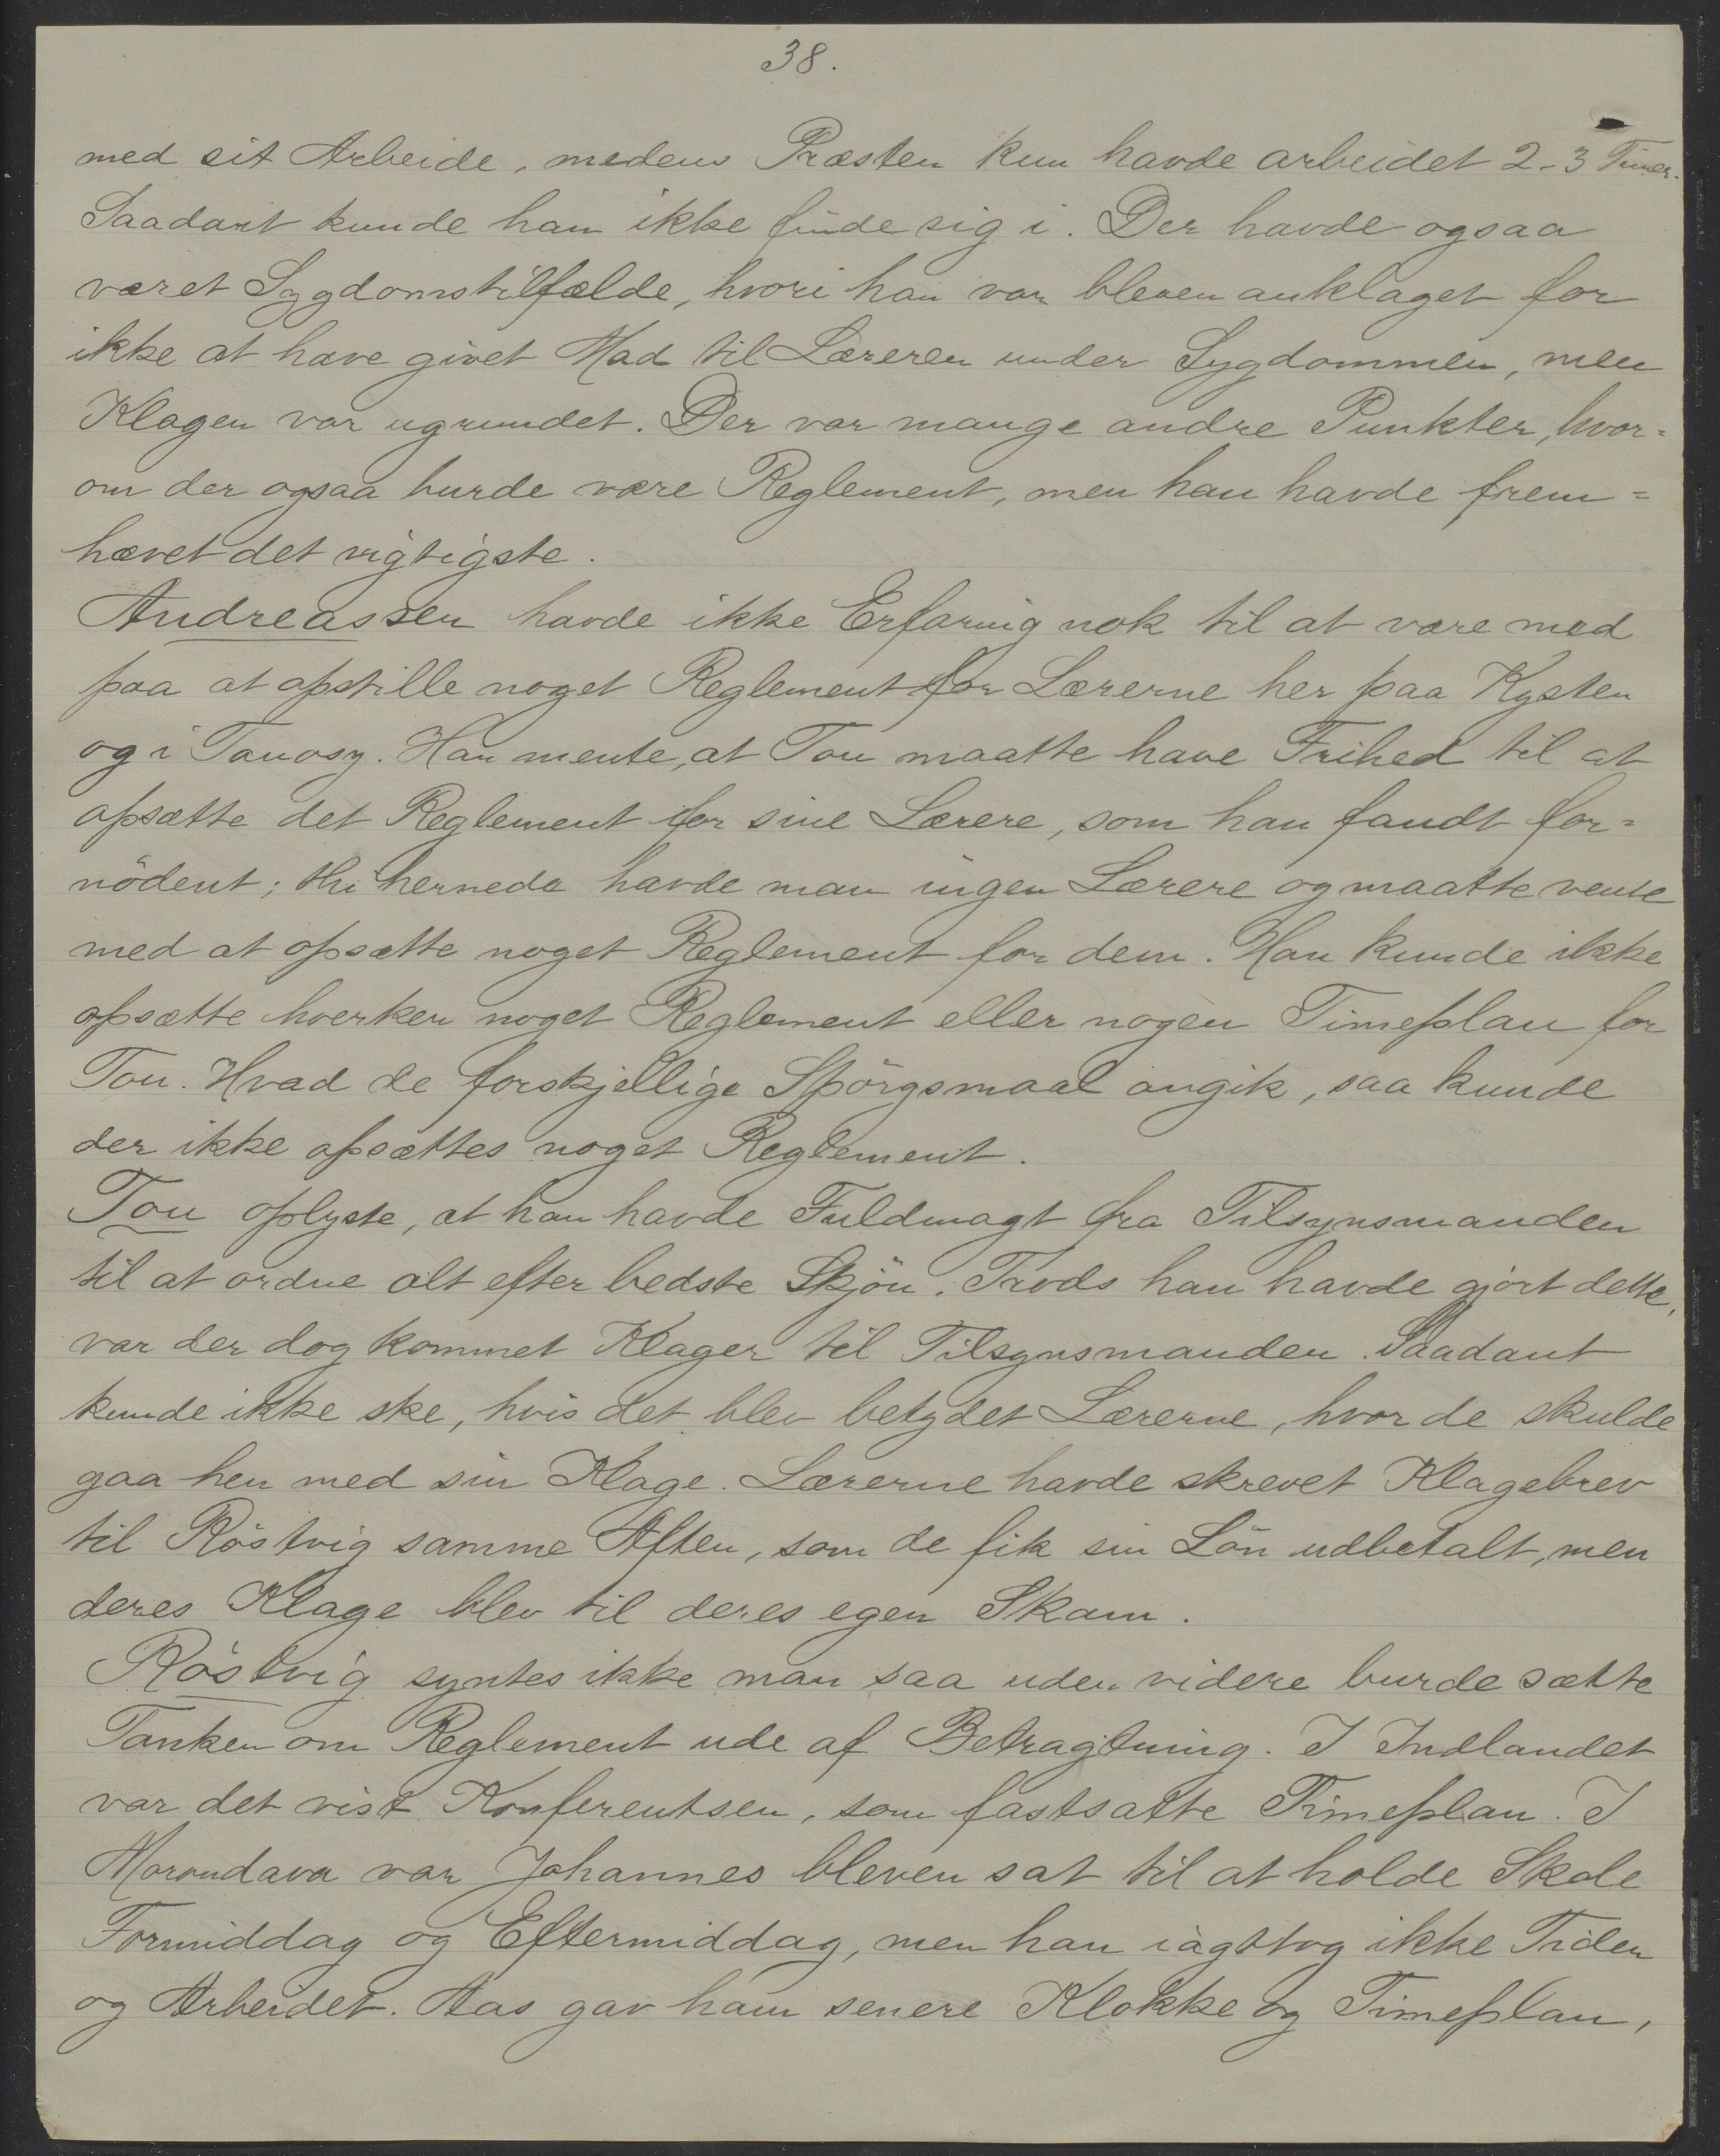 38.
med sit Arbeide, medens Præsten kun havde arbeidet 2-3 Timer.
Saadant kunde han ikke finde sig i. Der havde ogsaa
været Sygdomstilfælde, hvori han var bleven anklaget for
ikke at have givet Mad til Læreren under Sygdommen, men
Klagen var ugrundet. Der var mange andre Punkter, hvor=
om der ogsaa burde være Reglement, men han havde frem=
hævet det vigtigste.
Andreassen havde ikke Erfaring nok til at være med
paa at opstille noget Reglement for Lærerne her paa Kysten
og i Tanosy. Han mente, at Tou maatte have Frihed til at
opsætte det Reglement for sine Lærere, som han fandt for=
nödent; thi hernede havde man ingen Lærere og maatte vente
med at opsætte noget Reglement for dem. Han kunde ikke
opsætte hverken noget Reglement eller nogen Timeplan for
Tou. Hvad de forskjellige Spörgsmaal angik, saa kunde
der ikke opsættes noget Reglement.
Tou oplyste, at han havde Fuldmagt fra Tilsynsmanden
til at ordne alt efter bedste Skjön. Trods han havde gjort dette,
var der dog kommet Klager til Tilsynsmanden. Saadant
kunde ikke ske, hvis det blev betydet Lærerne, hvor de skulde
gaa hen med sin Klage. Lærerne havde skrevet Klagebrev
til Röstvig samme Aften, som de fik sin Lön udbetalt, men
deres Klage blev til deres egen Skam.
Röstvig syntes ikke man saa uden videre burde sætte
Tanken om Reglement ude af Betragtning. I Indlandet
var det vist Konferentsen, som fastsatte Timeplan. I
Morondava var Johannes bleven sat til at holde Skole
Formiddag og Eftermiddag, men han iagttog ikke Tiden
og Arbeidet. Aas gav ham senere Klokke og Timeplan,